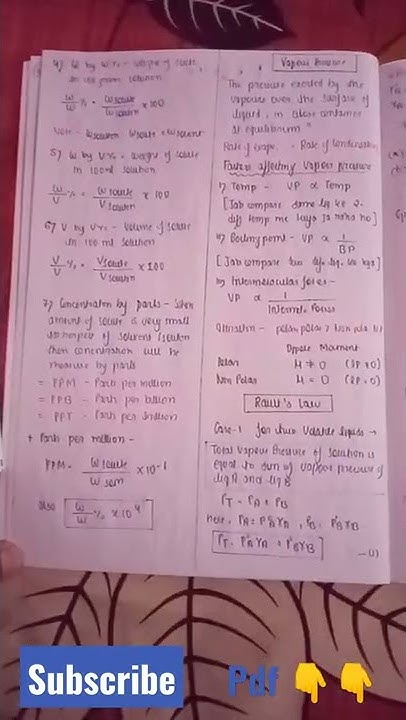 4) W by W% - weight of solute
in 100 gram solution
w/w % = W solute / W solution × 100
Note - W solution = W solute + W solvent
5) W by V% - weight of solute
in 100 ml solution
w/V % = W solute / V solution × 100
6) V by V% - Volume of solute
in 100 ml solution
V/V % = V solute / V solution × 100
7) Concentration by parts - when
amount of solute is very small
in respect of solvent/solution
then concentration will be
measure by parts
= PPM - Parts per million
= PPB - Parts per billion
= PPT - Parts per trillion
+ Parts per million -
PPM = W solute / W soln × 10
Also w/w % × 10⁴
Vapour Pressure
The pressure exerted by the
vapours over the surface of
liquid, in close container
at equilibrium"
Rate of evap. = Rate of condensation
Factors affecting Vapour pressure
i) Temp - VP ∝ Temp
[Jab compare same liq ke 2
diff temp me kiya ja raha ho]
ii) Boiling point - VP ∝ 1/BP
[Jab compare two diff liq.
iii) Intermolecular forces -
VP ∝ 1 / Intermole. Forces
Attraction - polar-polar > Non polar
Dipole Moment
Polar μ ≠ 0
Non Polar μ = 0
Rault's Law
Case-1 for two Volatile liquids →
Total Vapour Pressure of solution is
equal to sum of vapour pressure of
liq A and liq B
P_T = P_A + P_B
here, P_A = P°_A X_A, P_B = P°_B X_B
P_T = P°_A X_A + P°_B X_B —(1)
Subscribe
Pdf 👇👇